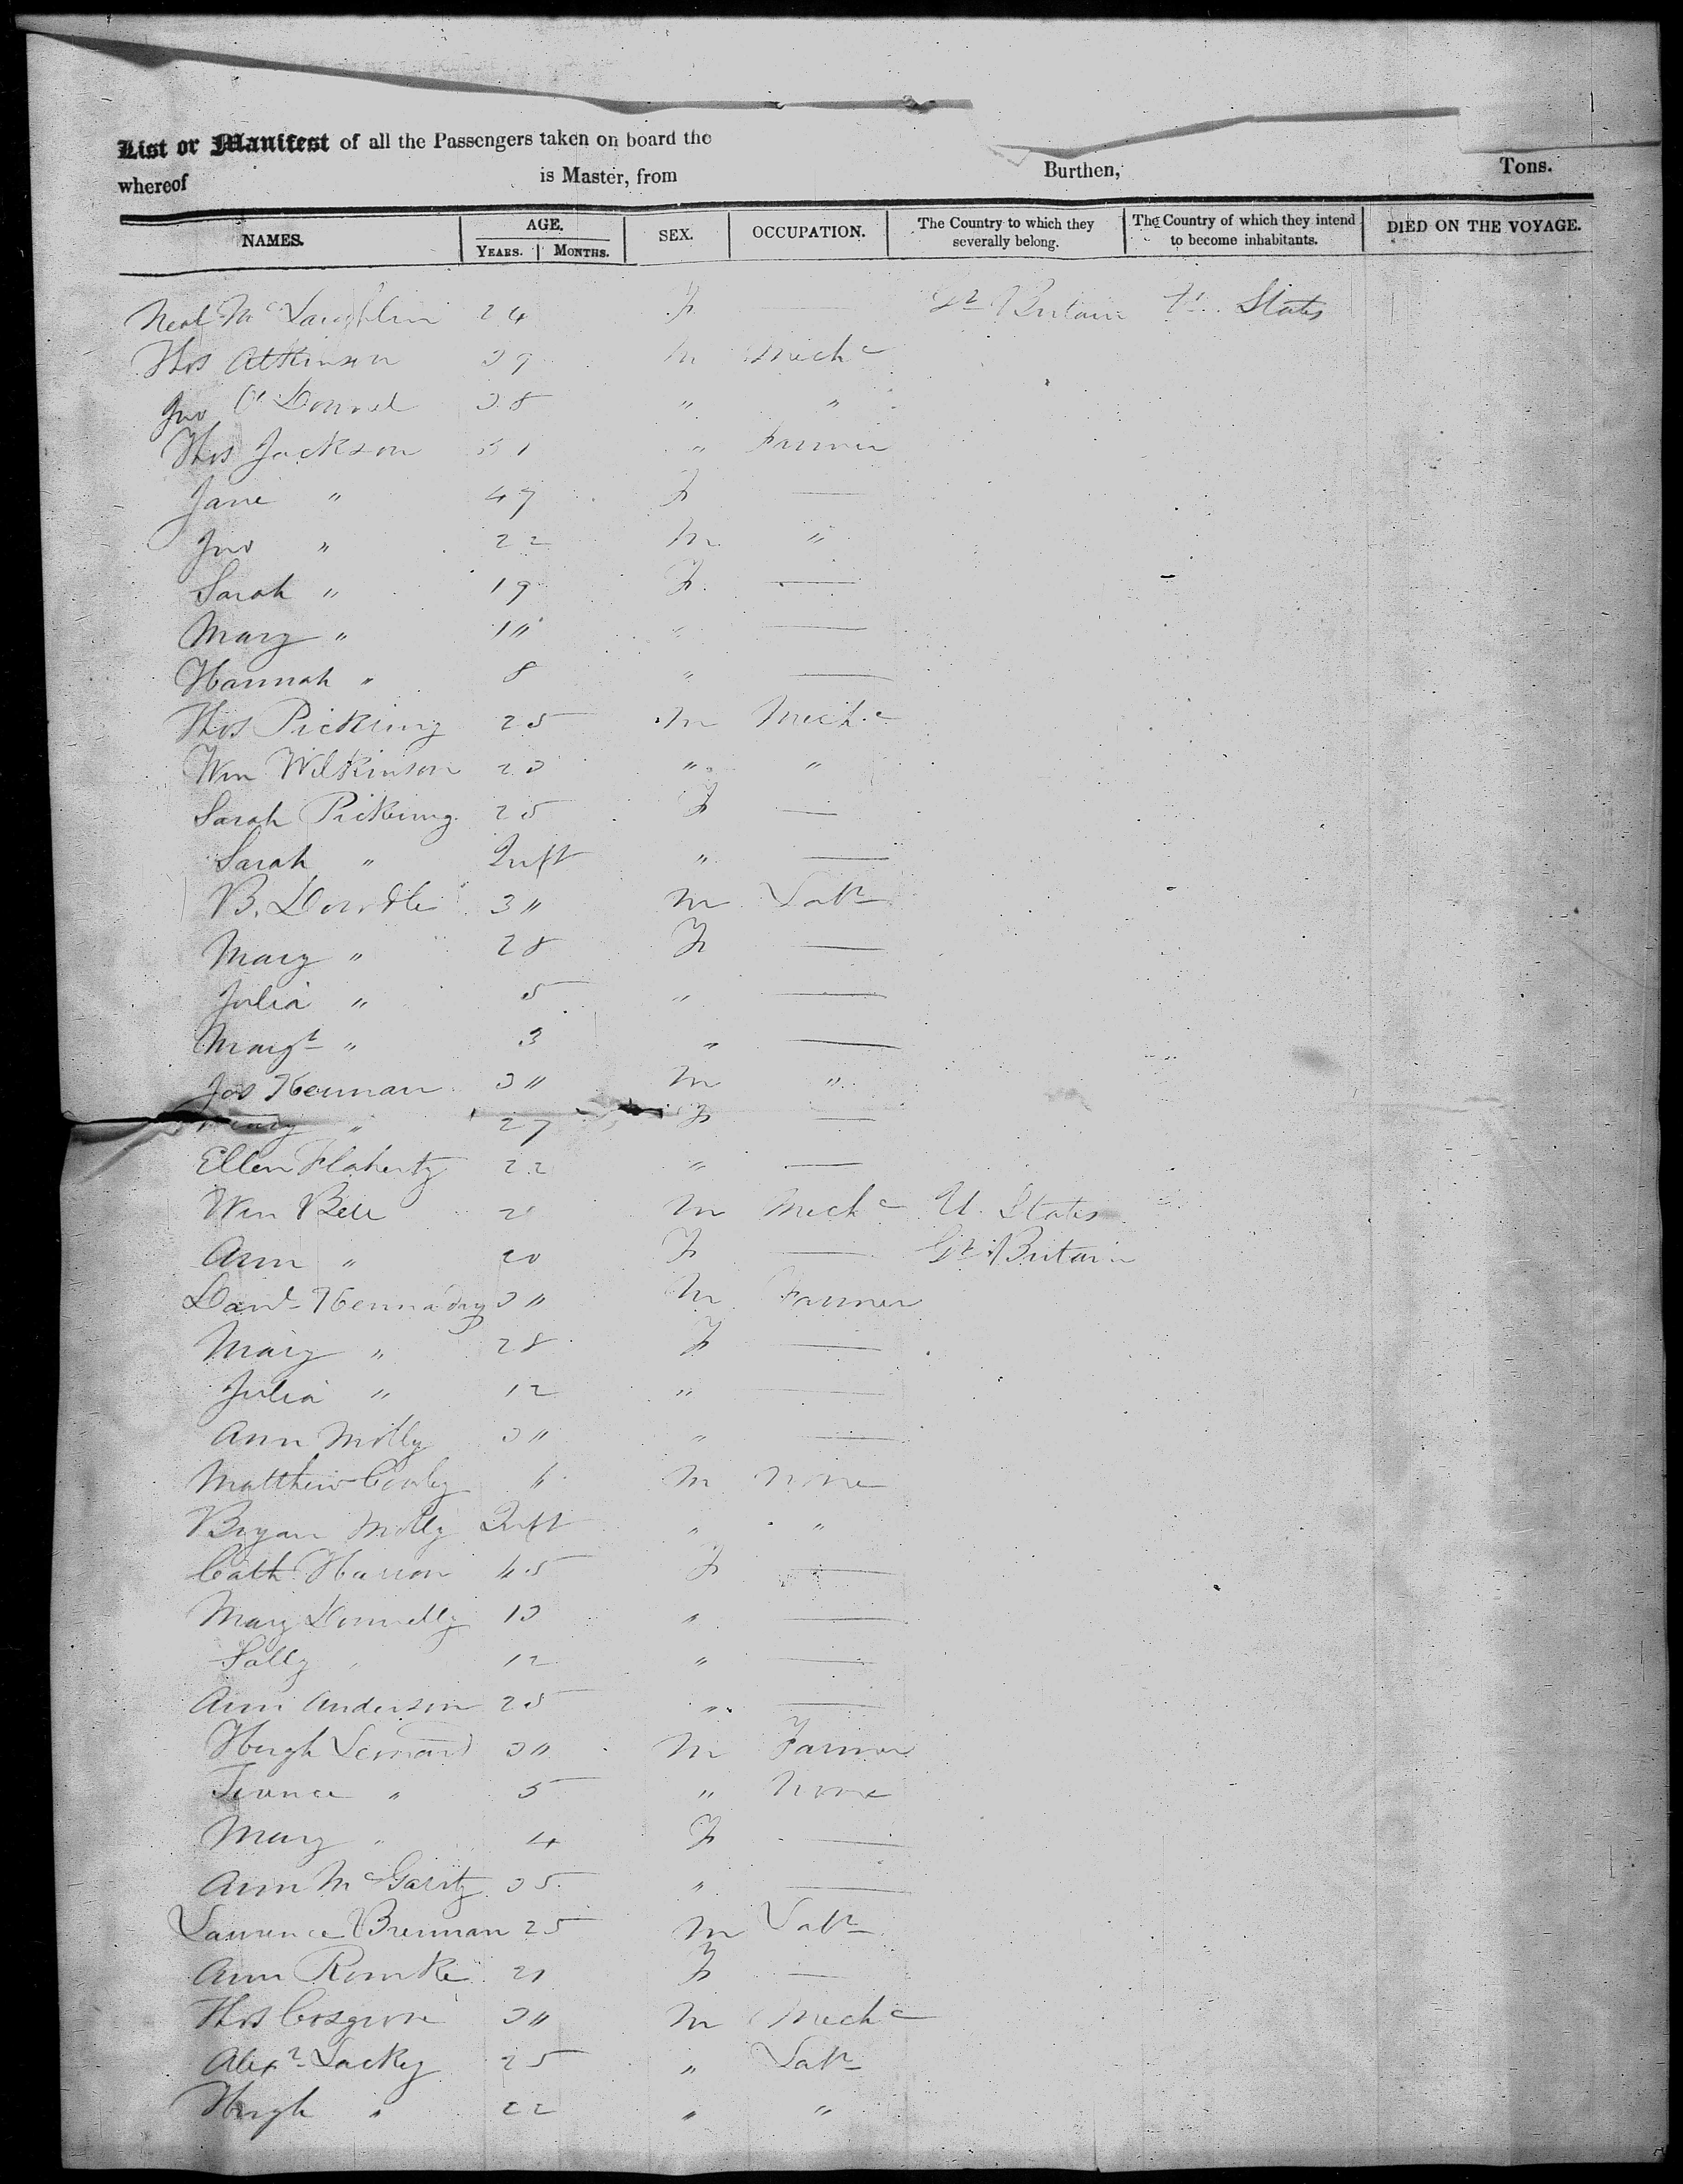 List or Manifest of all the Passengers taken on board the
whereof is Master, from Burthen, Tons.
NAMES. AGE. YEARS. MONTHS. SEX. OCCUPATION. The Country to which they severally belong. The Country of which they intend to become inhabitants. DIED ON THE VOYAGE.
Neal McLaughlin 24 F — Gt Britain U. States
Thos Atkinson 39 M Mechc
Jno O'Donnel 38 " "
Thos Jackson 51 " Farmer
Jane " 47 F —
Jno " 22 M "
Sarah " 19 F —
Mary " 1" " —
Hannah " 8 " —
Thos Pickring 25 M Mechc
Wm Wilkinson 23 " "
Sarah Pickering 25 F —
Sarah " Inft " —
B. Dowdle 3" M Labr
Mary " 28 F —
Julia " 5 " —
Margt " 3 " —
Jos Keenan 3" M "
Mary " 27 F —
Ellen Flaherty 22 " —
Wm Bell 2 M Mechc U. States
Ann " 20 F — Gt Britain
Danl Kennaday 3" M Farmer
Mary " 28 F —
Julia " 12 " —
Ann Molly 3" " —
Matthew Conley 6 M None
Bryan Molly Inft " "
Cath Harron 45 F —
Mary Donnelly 13 " —
Sally " 12 " —
Ann Anderson 25 " —
Hugh Lennard 3" M Farmer
Terance " 5 " None
Mary " 4 F —
Ann McGarity 35 " —
Laurence Brennan 25 M Labr
Ann Rourke 21 F —
Thos Cosgrove 3" M Mechc
Alexr Lacky 25 " Labr
Hugh " 22 " "